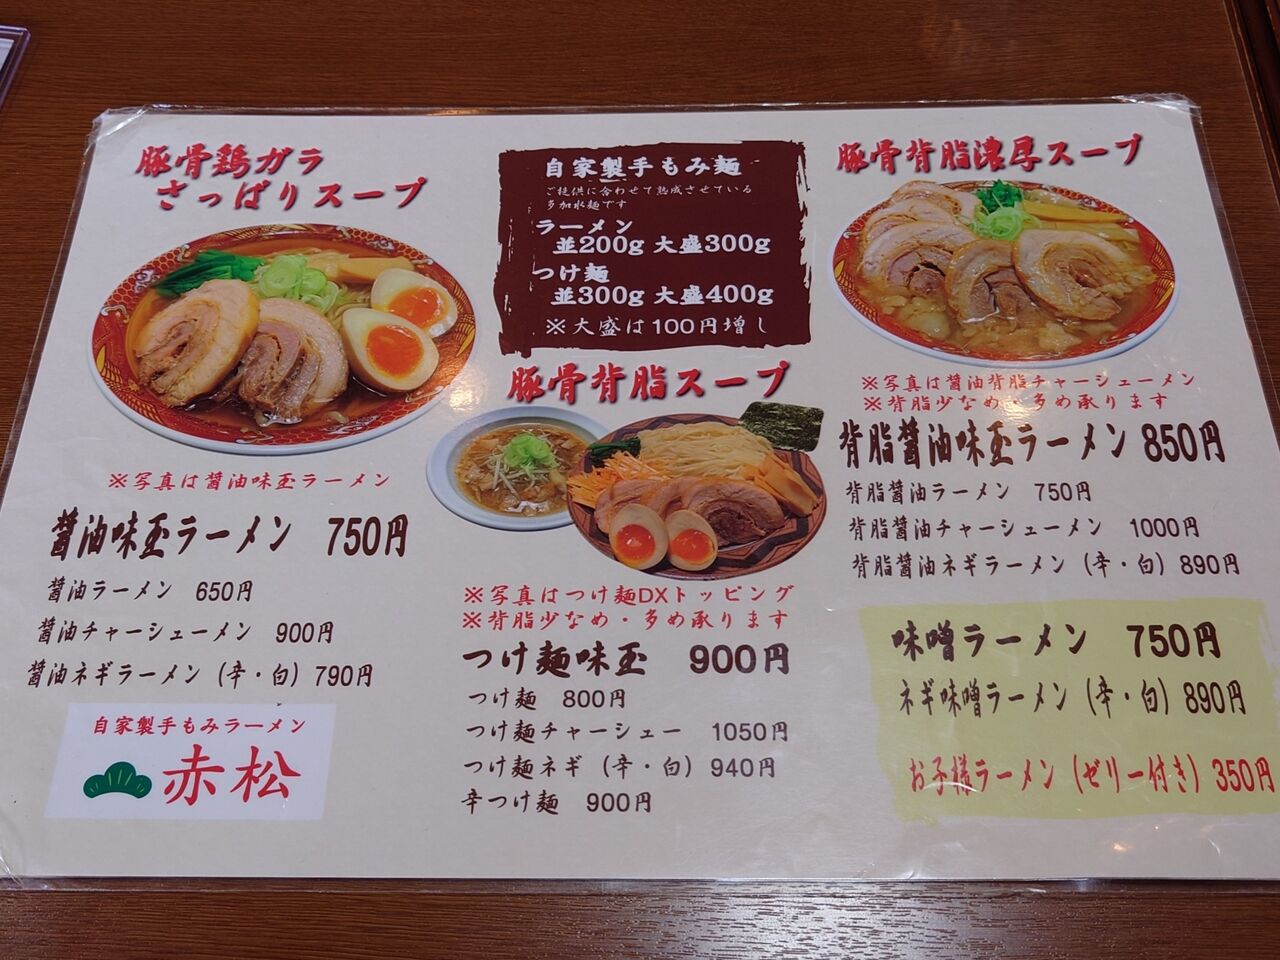 豚骨鶏ガラ
さっぱりスープ
※写真は醤油味玉ラーメン
醤油味玉ラーメン 750円
醤油ラーメン 650円
醤油チャーシューメン 900円
醤油ネギラーメン（辛・白）790円
自家製手もみラーメン
赤松
自家製手もみ麺
ご提供に合わせて熟成させている
多加水麺です
ラーメン
並200g 大盛300g
つけ麺
並300g 大盛400g
※大盛は100円増し
豚骨背脂スープ
※写真はつけ麺DXトッピング
※背脂少なめ・多め承ります
つけ麺味玉 900円
つけ麺 800円
つけ麺チャーシュー 1050円
つけ麺ネギ（辛・白）940円
辛つけ麺 900円
豚骨背脂濃厚スープ
※写真は醤油背脂チャーシューメン
※背脂少なめ・多め承ります
背脂醤油味玉ラーメン 850円
背脂醤油ラーメン 750円
背脂醤油チャーシューメン 1000円
背脂醤油ネギラーメン（辛・白）890円
味噌ラーメン 750円
ネギ味噌ラーメン（辛・白）890円
お子様ラーメン（ゼリー付き）350円